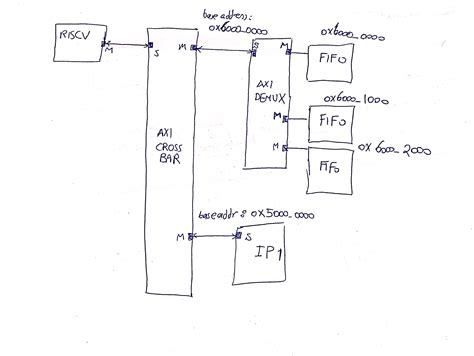 base address:
0x6000_0000
0x6000_0000
RISCV
M
S
M
S
M
FIFO
AXI
DEMUX
0x6000_1000
M
FIFO
AXI
CROSS
BAR
M
0x6000_2000
FIFO
base addr: 0x5000_0000
M
S
IP1